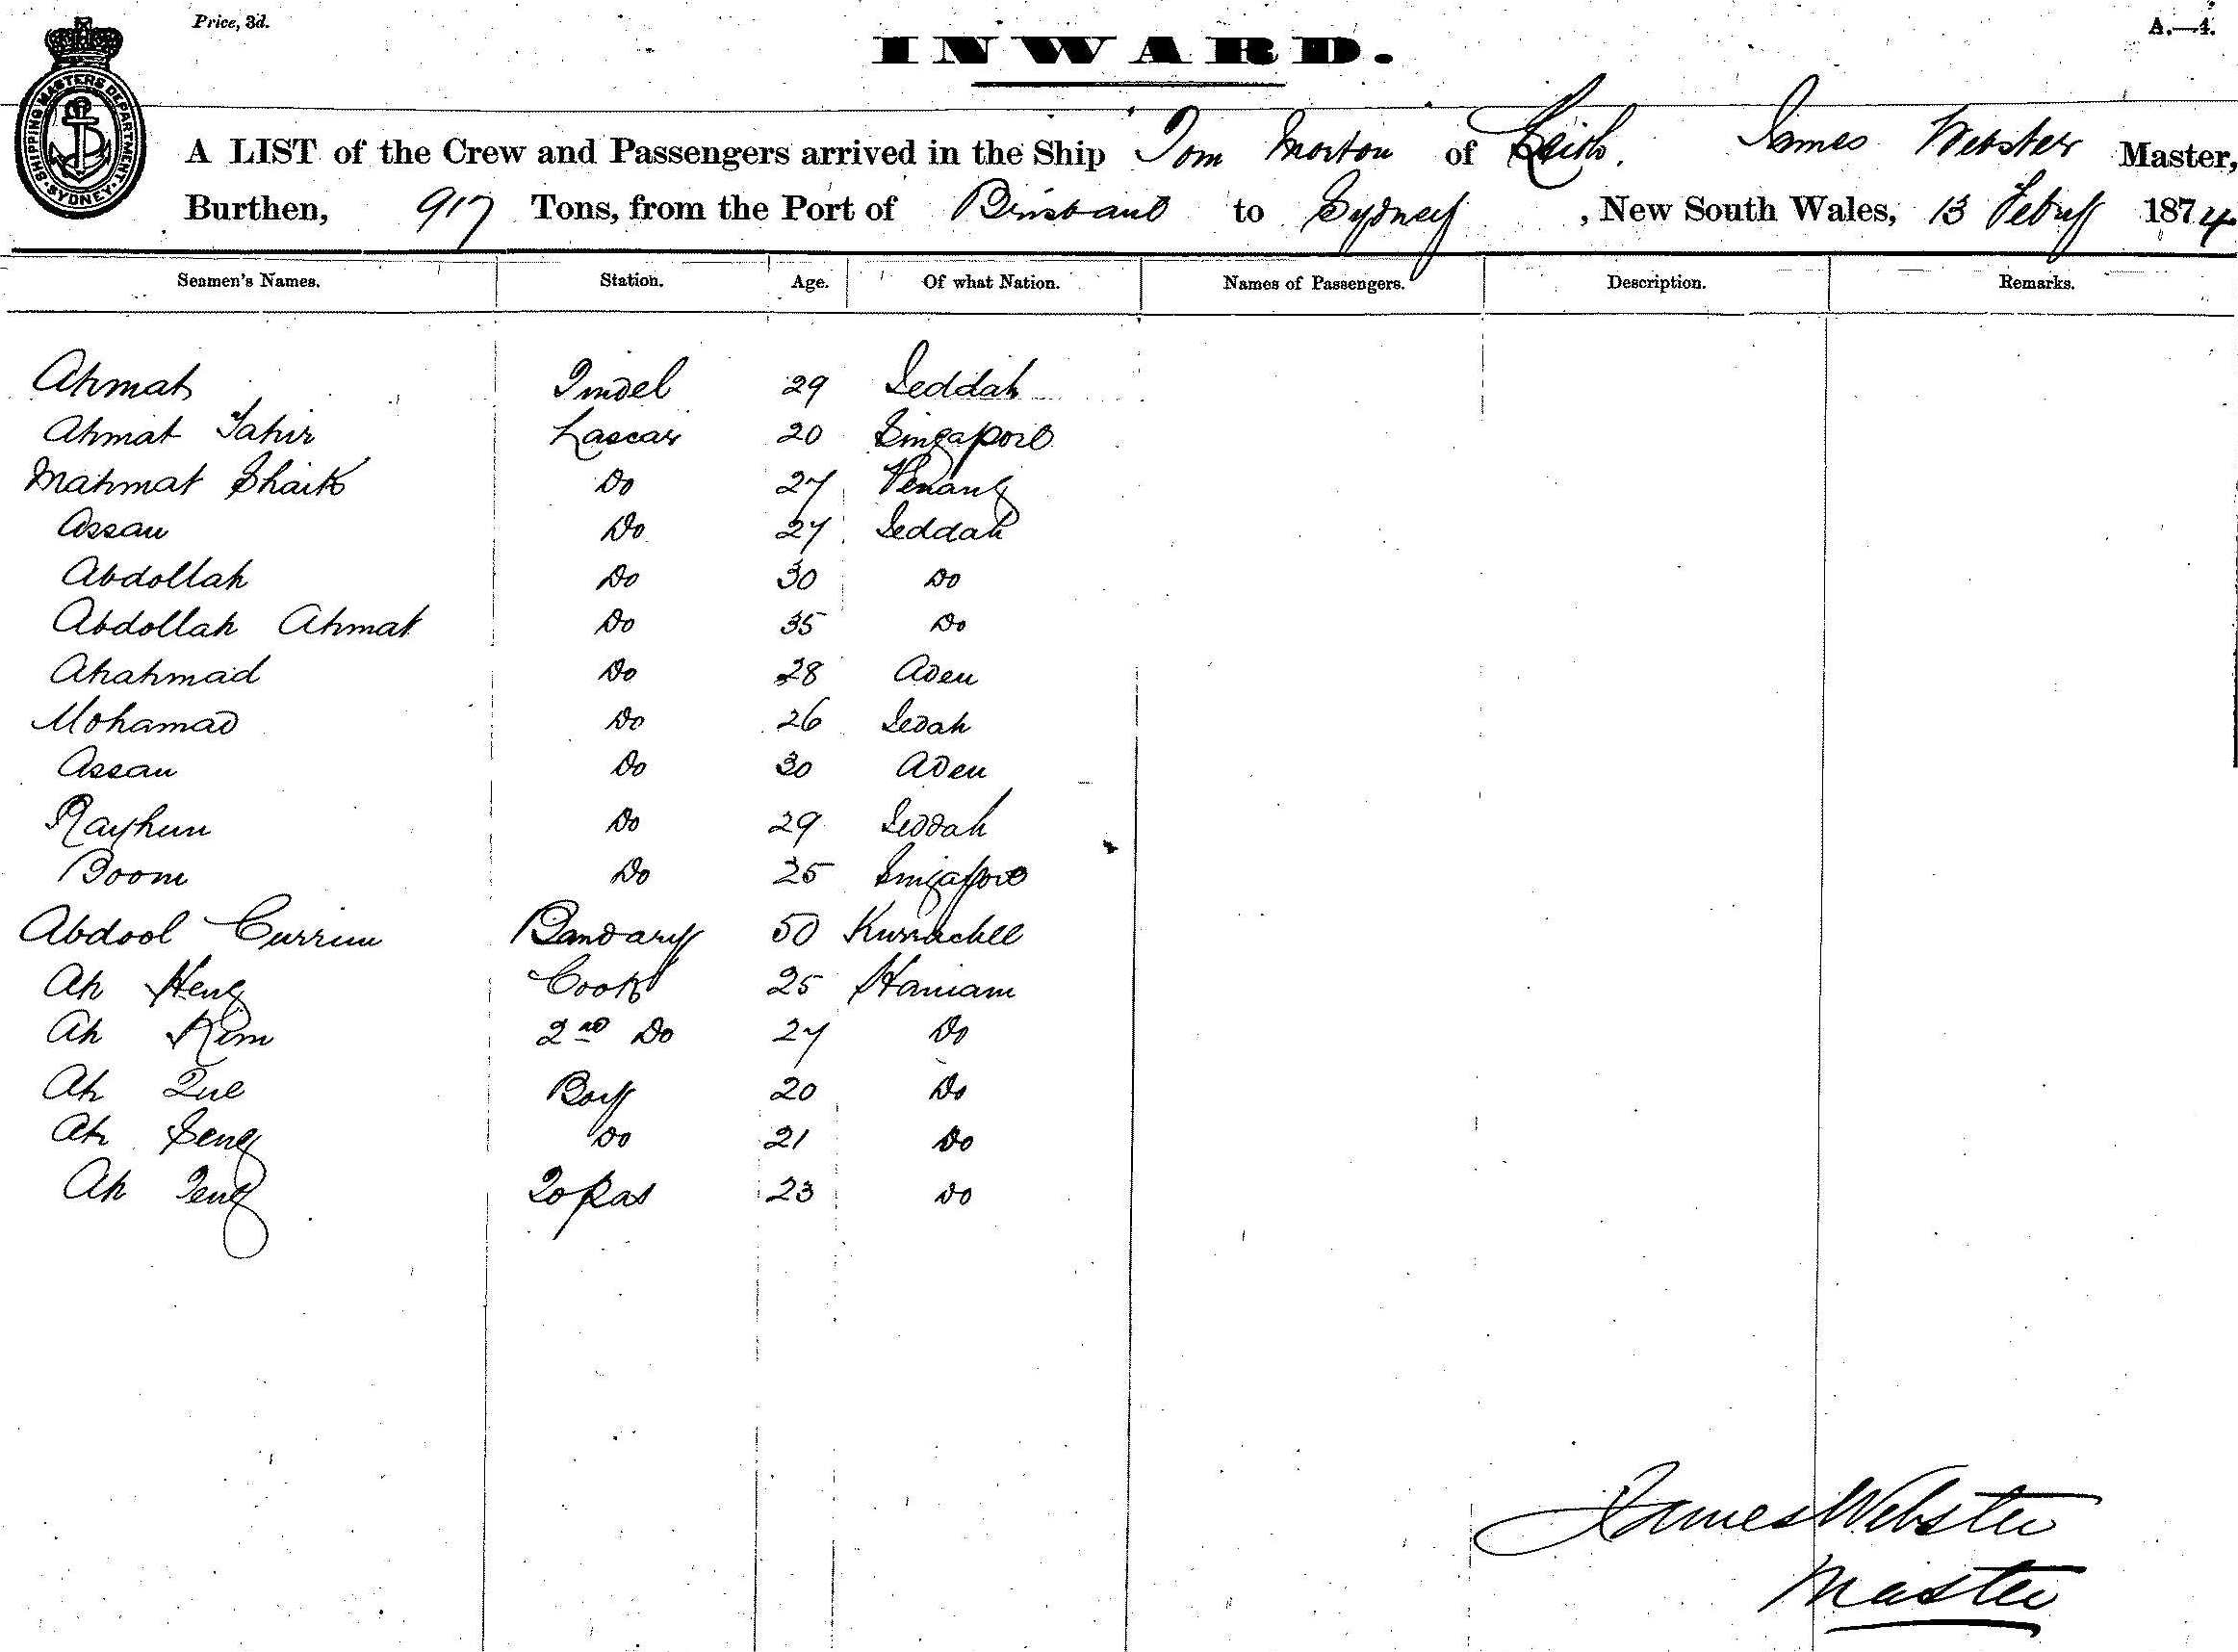 Price, 3d.
A.—4.
INWARD.
SHIPPING MASTERS DEPARTMENT. SYDNEY.
A LIST of the Crew and Passengers arrived in the Ship Tom Morton of Leith. James Webster Master,
Burthen, 917 Tons, from the Port of Brisbane to Sydney, New South Wales, 13 Febry 1874
Seamen's Names. Station. Age. Of what Nation. Names of Passengers. Description. Remarks.
Ahmat Tindel 29 Jeddah
Ahmat Tahir Lascar 20 Singapore
Mahmat Shaik Do 27 Penang
Assan Do 27 Jeddah
Abdollah Do 30 Do
Abdollah Ahmat Do 35 Do
Ahahmad Do 28 Aden
Mohamad Do 26 Jedah
Assan Do 30 Aden
Rayhun Do 29 Jeddah
Boom Do 25 Singapore
Abdool Currim Bandary 50 Kurrachee
Ah Heng Cook 25 Haniam
Ah Kim 2nd Do 27 Do
Ah Que Boy 20 Do
Ah Seng Do 21 Do
Ah Teng Topas 23 Do
James Webster
Master